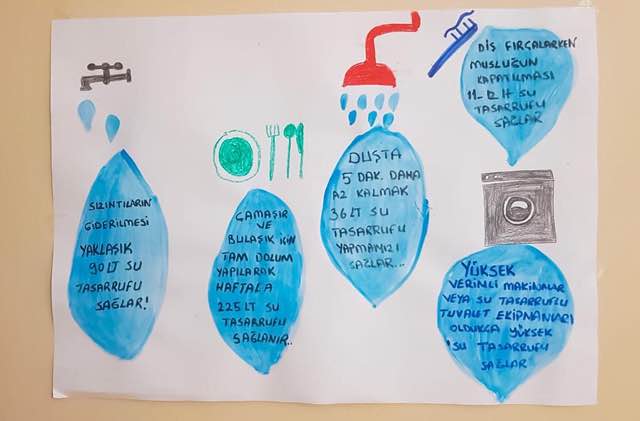 SIZINTILARIN
GİDERİLMESİ
YAKLAŞIK
90 LT SU
TASARRUFU
SAĞLAR!
ÇAMAŞIR
VE
BULAŞIK İÇİN
TAM DOLUM
YAPILARAK
HAFTALA
225 LT SU
TASARRUFU
SAĞLANIR..
DUŞTA
5 DAK. DAHA
AZ KALMAK
36 LT SU
TASARRUFU
YAPMAMIZI
SAĞLAR...
DİŞ FIRÇALARKEN
MUSLUĞUN
KAPATILMASI
11-12 lt SU
TASARRUFU
SAĞLAR
YÜKSEK
VERİMLİ MAKİNALAR
VEYA SU TASARRUFLU
TUVALET EKİPMANLARI
OLDUKÇA YÜKSEK
SU TASARRUFU
SAĞLAR